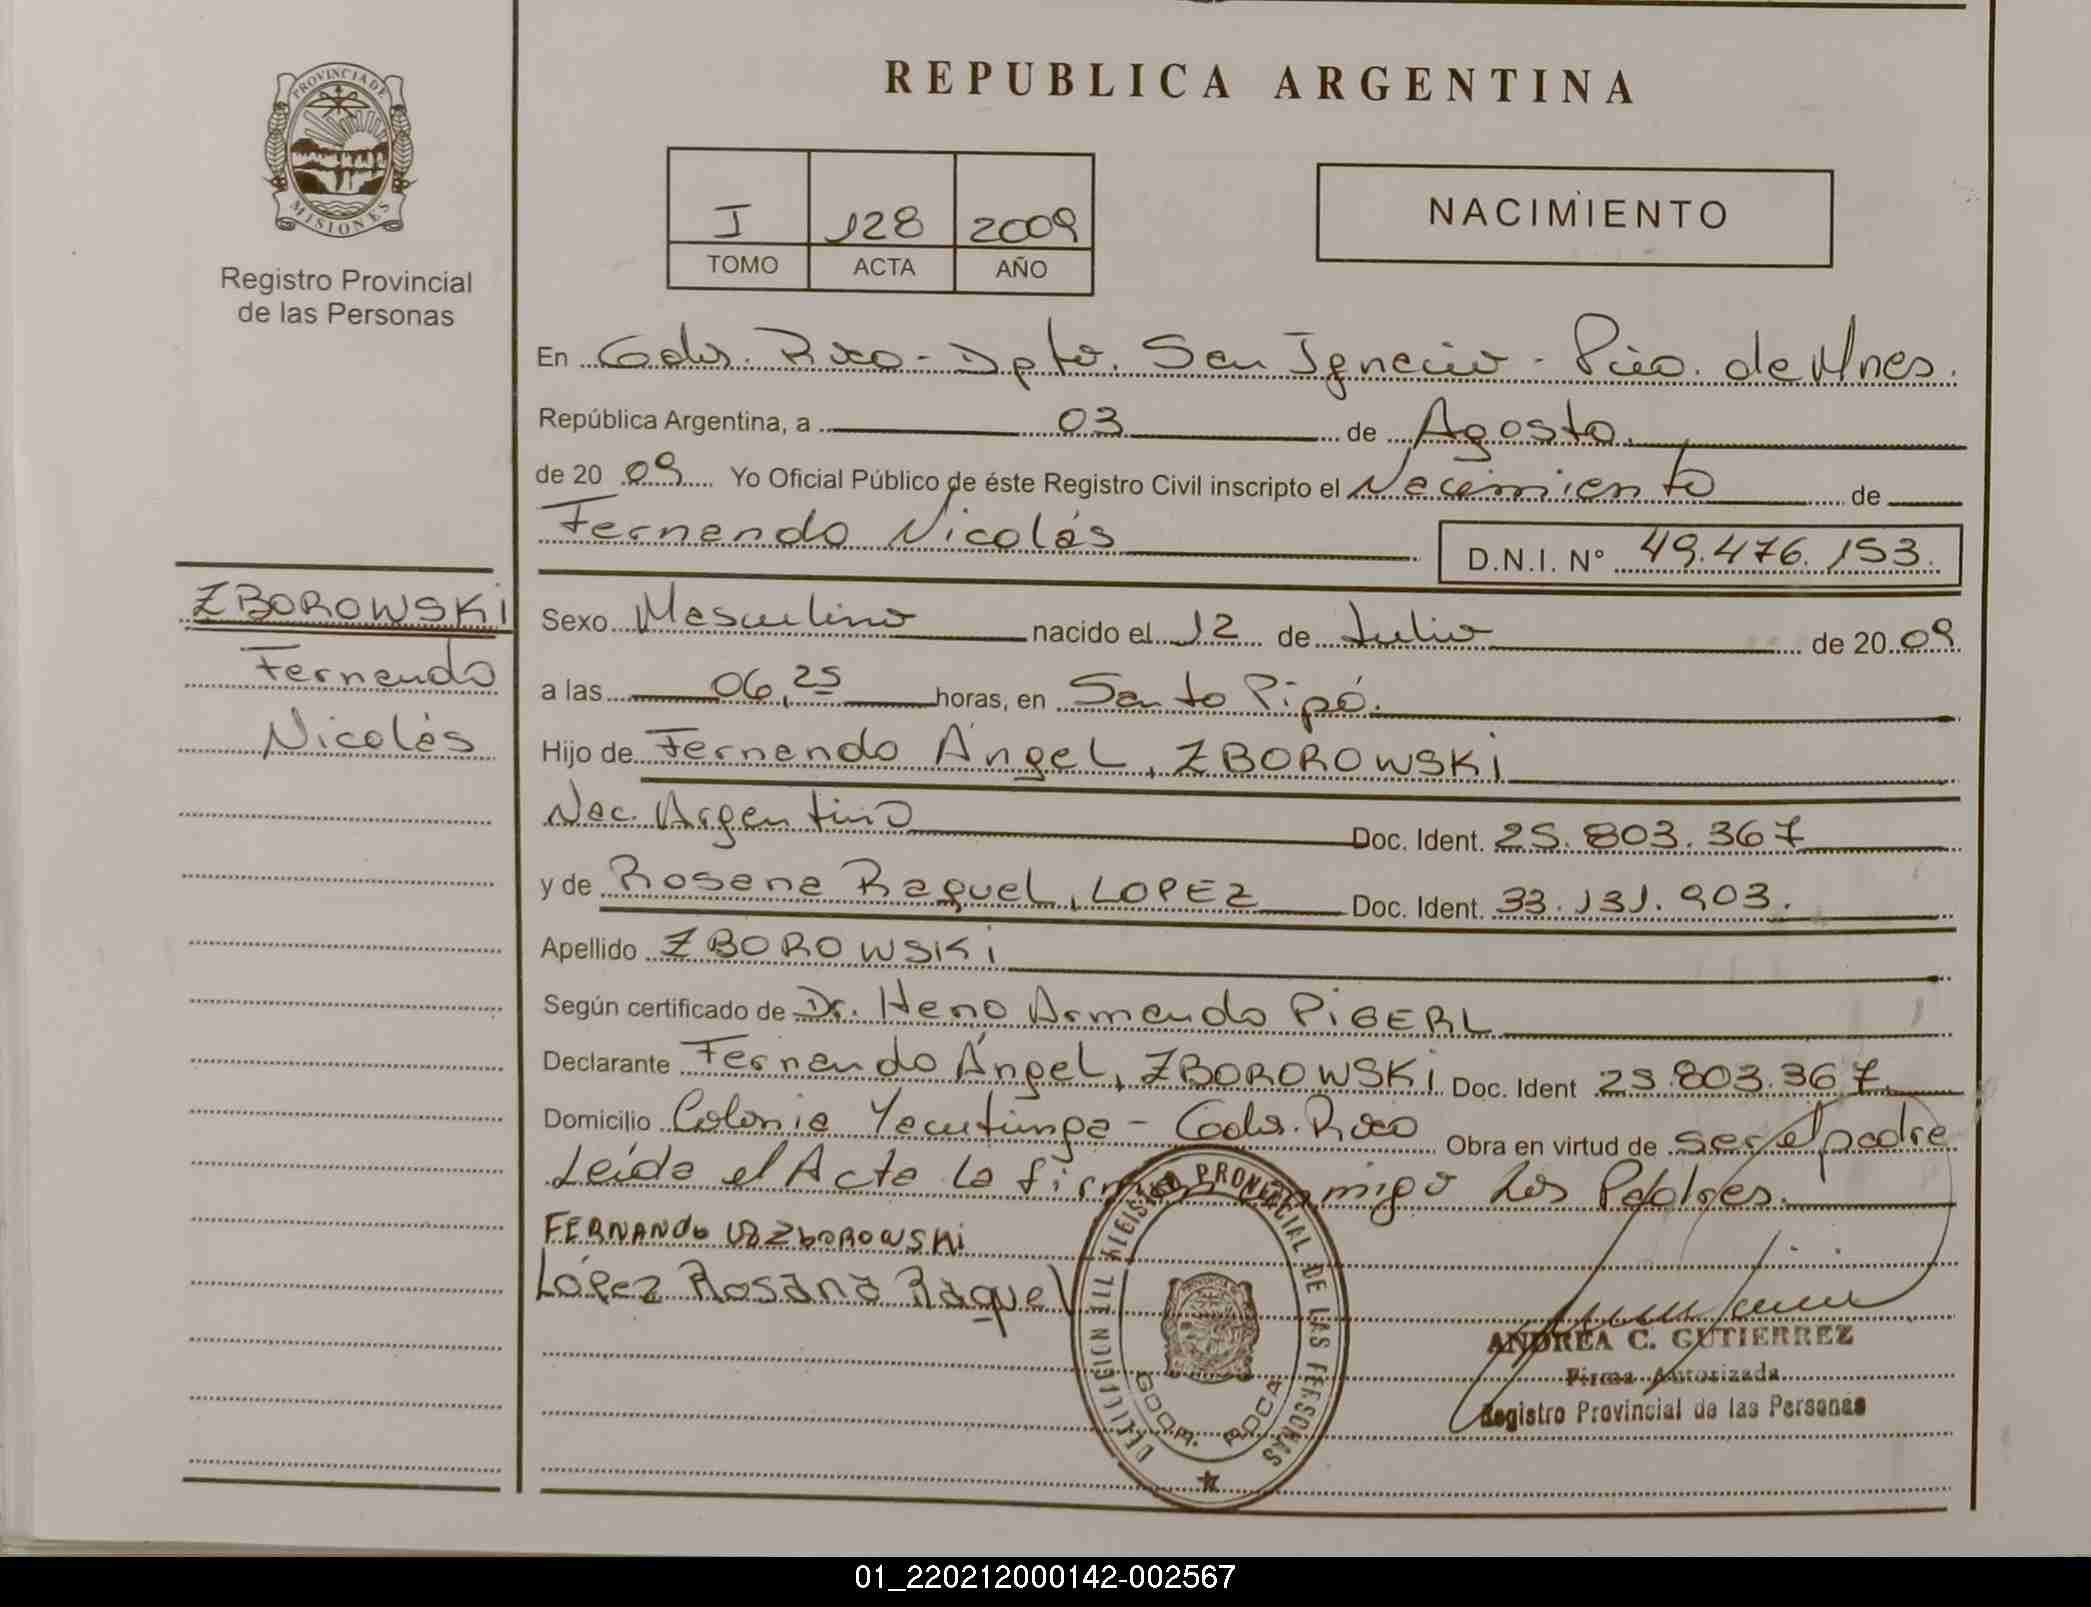 REPUBLICA ARGENTINA
PROVINCIA DE
MISIONES
Registro Provincial
de las Personas
I 128 2009
TOMO ACTA AÑO
NACIMIENTO
En Gdor. Roca - Dpto. San Ignacio - Pcia. de Mnes.
República Argentina, a 03 de Agosto.
de 20 09 Yo Oficial Público de éste Registro Civil inscripto el Nacimiento de
Fernando Nicolás D.N.I. Nº 49.476.153.
ZBOROWSKi
Fernando
Nicolás
Sexo Masculino nacido el 12 de Julio de 20 09
a las 06,25 horas, en Santo Pipó.
Hijo de Fernando Ángel, ZBOROWSKi
Nac. Argentino Doc. Ident. 25.803.367
y de Rosana Raquel, LOPEZ Doc. Ident. 33.131.903.
Apellido ZBOROWSKi
Según certificado de Dr. Armando
Declarante Fernando Ángel, ZBOROWSKi Doc. Ident 25.803.367.
Domicilio Colonia Yacutinga - Gdor. Roca Obra en virtud de ser el padre
Leída el Acta la Los Padres.
FERNANDO ZBOROWSKi
López Rosana Raquel
REGISTRO PROVINCIAL DE LAS PERSONAS
GDOR. ROCA
ANDREA C. GUTIERREZ
Firma Autorizada
Registro Provincial de las Personas
01_220212000142-002567